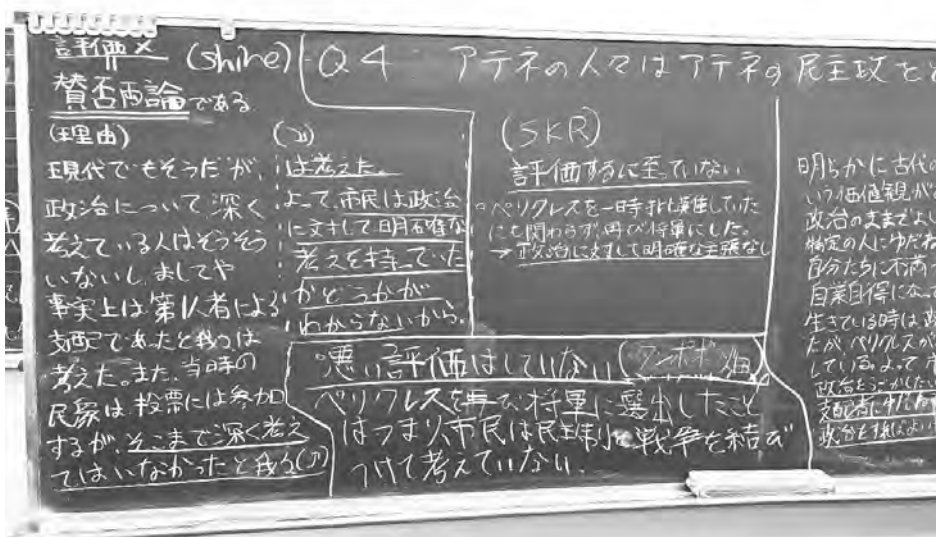 Q4 アテネの人々はアテネの民主政をど
評価✕ (shine)
賛否両論である
(理由)
現代でもそうだが、
政治について深く
考えている人はそうそう
いないし、ましてや
事実上は第1人者による
支配であったと我々は
考えた。また、当時の
民衆は、投票には参加
するが、そこまで深く考え
てはいなかったと我々(ア)
(ア)
は考えた。
よって、市民は政治
に対して明確な
考えを持っていた
かどうかが
わからないから。
(SKR)
評価するに至っていない
ペリクレスを一時
にも関わらず、再び将軍にした。
→政治に対して明確な主張なし
悪い評価はしていない(タンポポ畑)
ペリクレスを再び将軍に選出したこと
はつまり、市民は民主制と戦争を結び
つけて考えていない。
明らかに古代の
いう価値観が
政治のままでよし
特定の人にゆだね
自分たちに不満
自業自得になって
生きている時は政
たが ペリクレスが
している。よって、市
政治をうごかしたい
支配者に
政治をすればよい